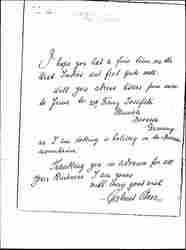 I hope you had a fine time in the
West Indies and feel quite well.
Will you address letters from now
to June to
Munich
Bavaria
Germany
as I am taking a holiday in the
mountains.
Thanking you in advance for all
your kindness I am yours
with every good wish